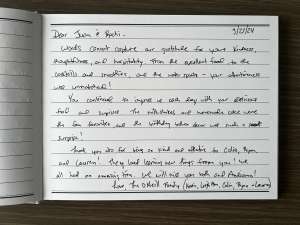 3/22/24
Dear Juan &
Words cannot capture our gratitude for your kindness,
thoughtfulness, and hospitality. From the excellent food to the
cocktails and smoothies, and the water sports - your attentiveness
was unmatched!
You continued to impress us each day with your delicious
food and surprises. The milkshakes and homemade cake were
the fan favorites and the birthday was such a sweet
surprise!
Thank you also for being so kind and attentive to Colin, Ryan,
and Lauren! They had learning new things from you! We
all had an amazing time. We will miss you both and
Love, The O'Neill Family (Colin, Ryan & Lauren)